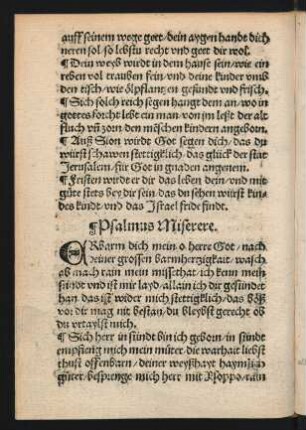 auff seinem wege geet/dein aygen handt dich
neren sol/so lebstu recht vnd geet dir wol.
¶ Dein weyb wirdt in dem hause sein/wie ein
reben vol trauben fein/vnd deine kinder vmb
den tisch/wie ölpflantzen gesundt vnd frisch.
¶ Sich solch reich segen hangt dem an/wo in
gottes forcht lebt ein man/von jm leßt der alt
fluch vñ zorn den mẽschen kindern angeborn.
¶ Auß Sion wirdt Got segen dich/das du
würst schawen stettigklich/das glück der stat
Jerusalem/für Got in gnaden angenem.
¶ Fristen wirdt er dir das leben dein/vnd mit
güte stets bey dir sein/das du sehen würst kin-
des kindt vnd das Israel fride findt.
¶ Psalmus Miserere.
ERbarm dich mein o herre Got/nach
deiner grossen barmhertzigkait/wasch
ab mach rain mein missethat/ich kenn mein
sündt vnd ist mir layd/allain ich dir gesündet
han/das ist wider mich stettigklich/das böß
vor dir mag nit bestan/du bleybst gerecht ob
du vrtaylst mich.
¶ Sich herr in sündt bin ich geborn/in sündt
empfieng mich mein müter/die warhait liebst
thust offenbarn/deiner weyßhayt haymlich
güter/besprenge mich herr mit Ysoppo/rain